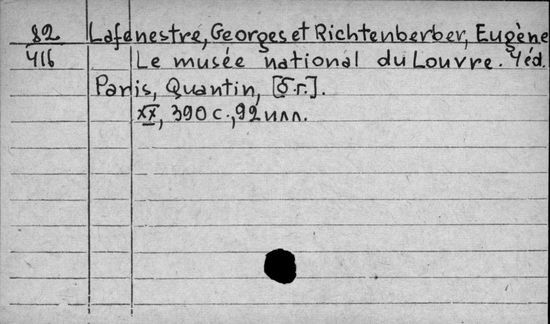 82 Lafenestre, Georges et Richtenberber, Eugène
416 Le musée national du Louvre. 4éd.
Paris, Quantin, [б.г.].
XX, 390 с., 92 илл.